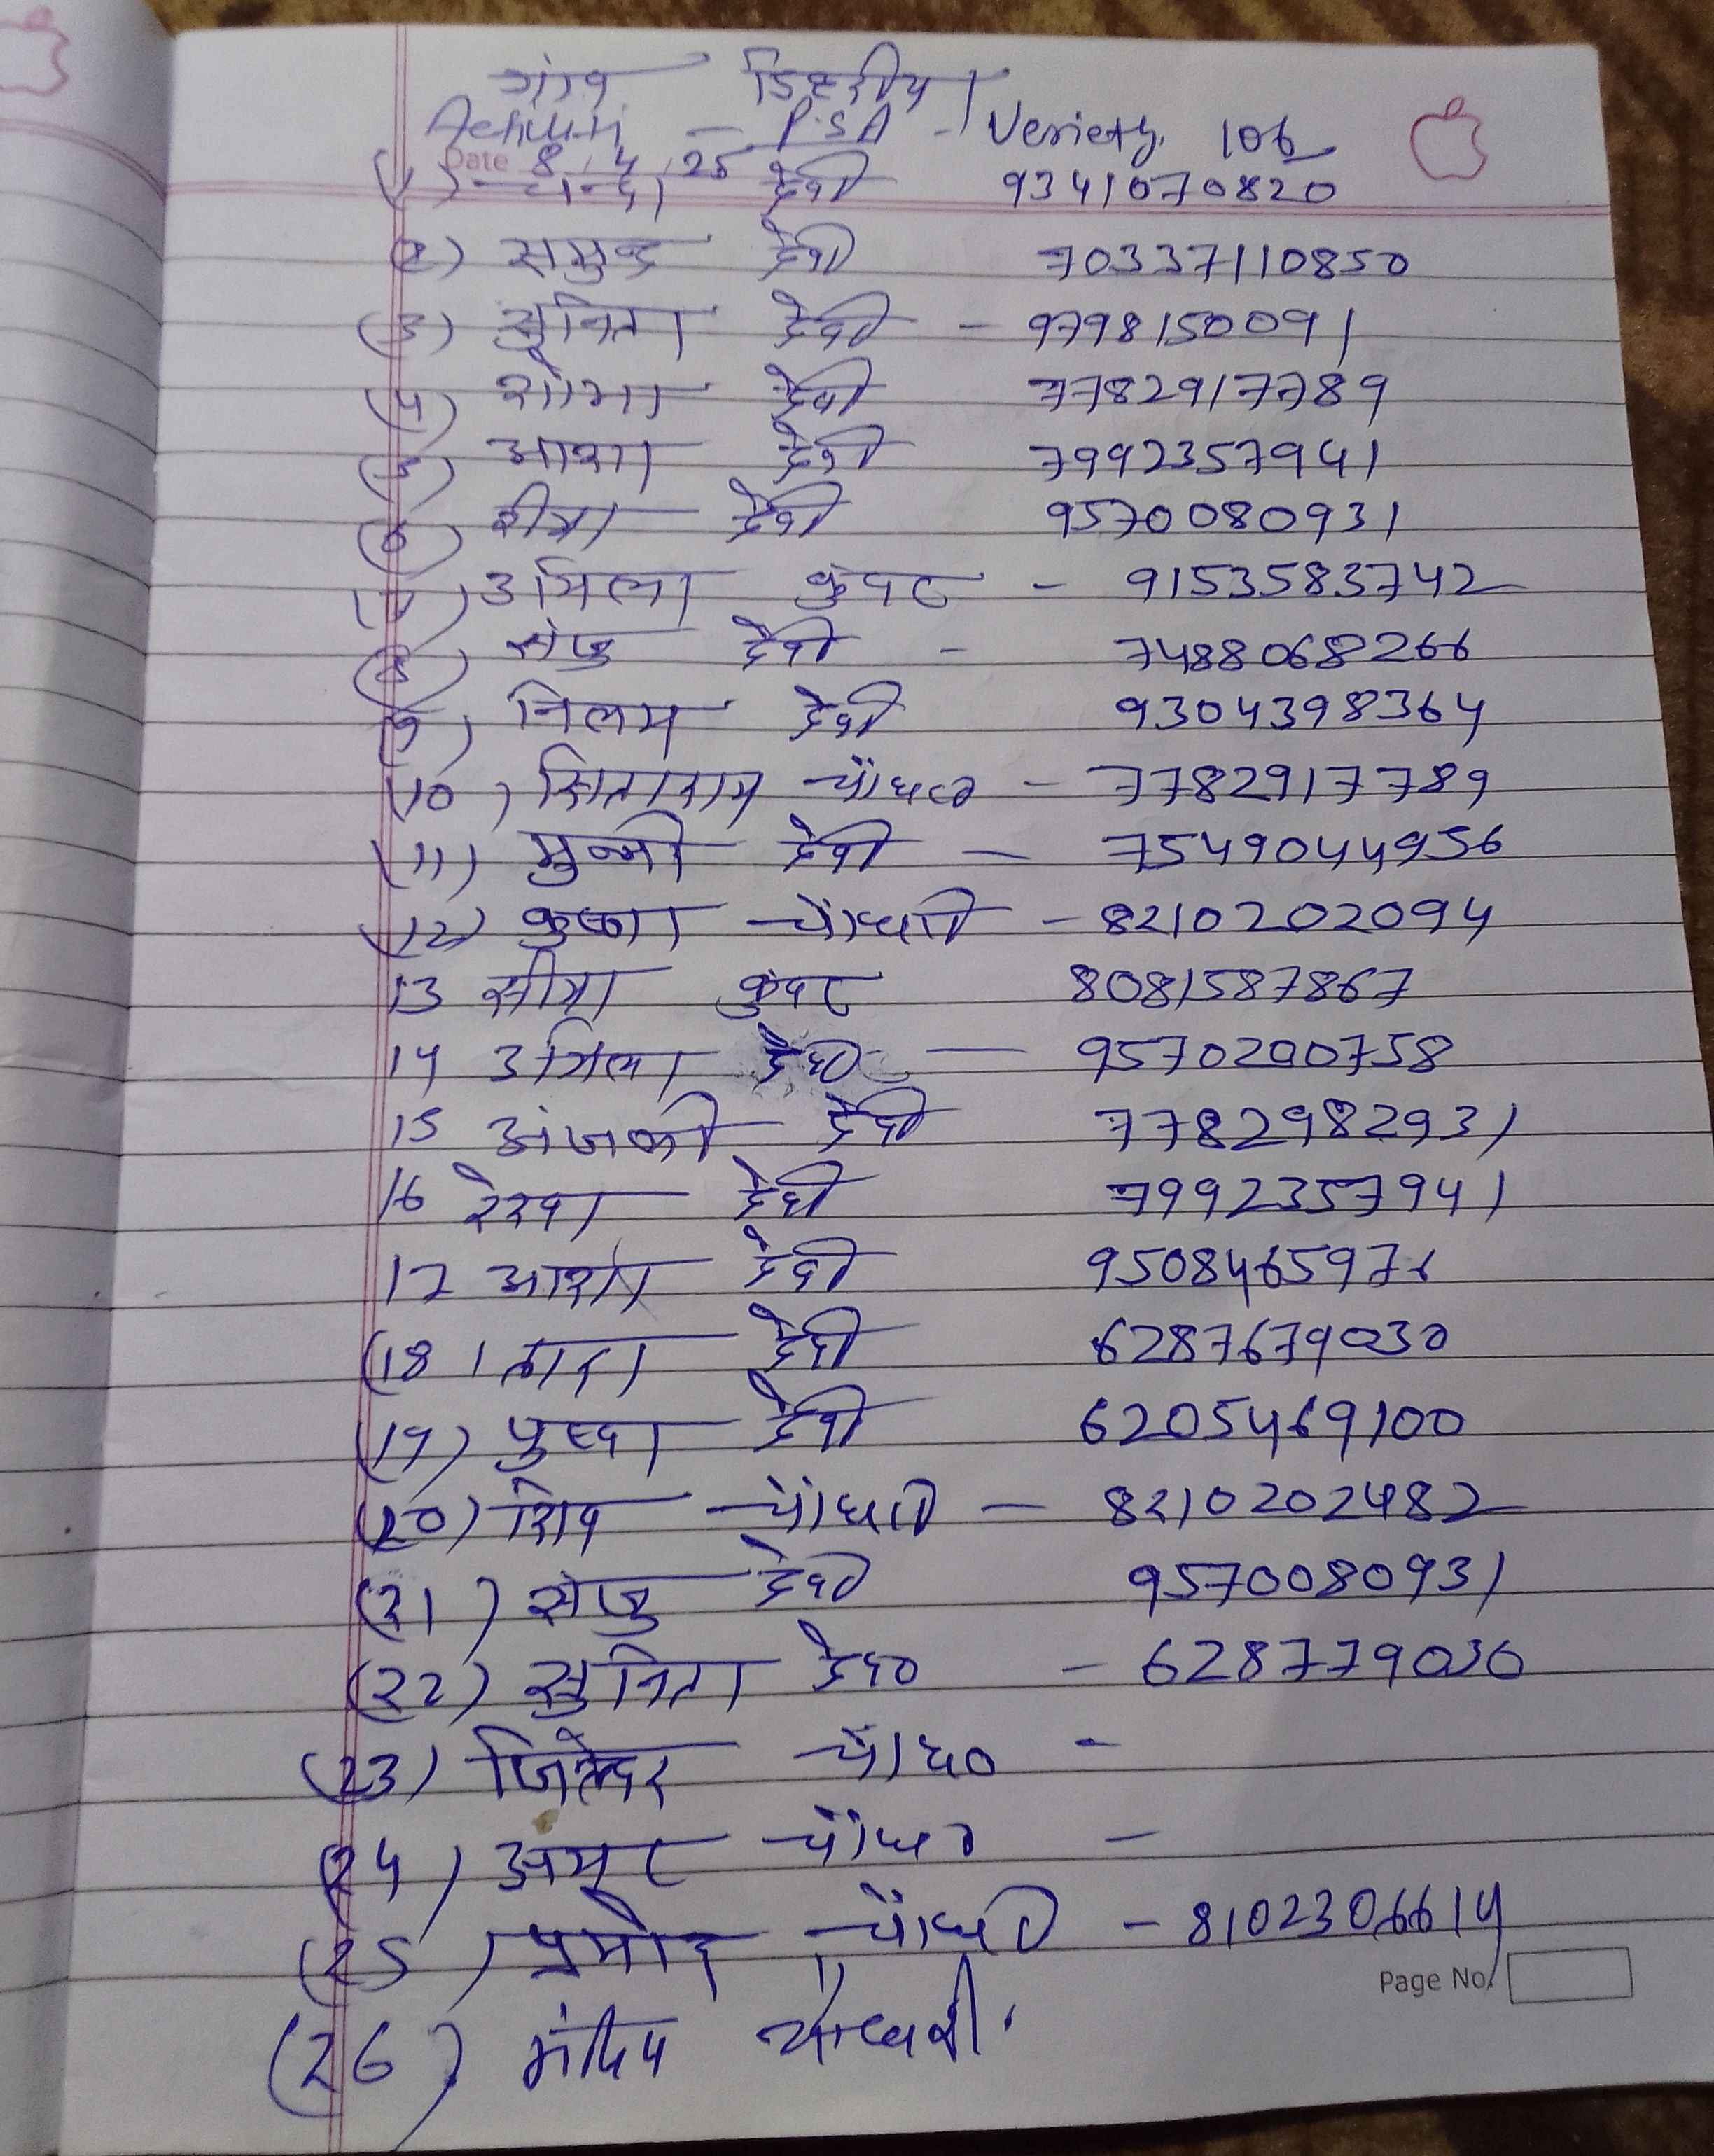 गांव
Activiti - P.S.A - Veriety. 106
Date 8/4/25
(1) चन्दा देवी 9341070820
(2) समुन्द्र देवी 70337110850
(3) सुनिता देवी - 9798150091
(4) शोभा देवी 7782917789
(5) आशा देवी 7992357941
(6) देवी 9570080931
(7) उर्मिला कुंवर - 9153583742
(8) संजु देवी - 7488068266
(9) निलम देवी 9304398364
(10) सिताराम चौधरी - 7782917789
(11) मुन्नी देवी - 7549044956
(12) कृष्णा चौधरी - 8210202094
13 कुंवर 8081587867
14 उर्मिला देवी - 9570200758
15 देवी 7782982931
16 रेखा देवी 7992357941
17 आशा देवी 9508465976
(18) देवी 6287679030
(19) पुष्पा देवी 6205469100
(20) शिव चौधरी - 8210202482
(21) संजु देवी 9570080931
(22) सुनिता देवी - 628779030
(23) चौधरी -
(24) अमर चौधरी -
(25) प्रमोद चौधरी - 8102306614
Page No.
(26) चौधरी